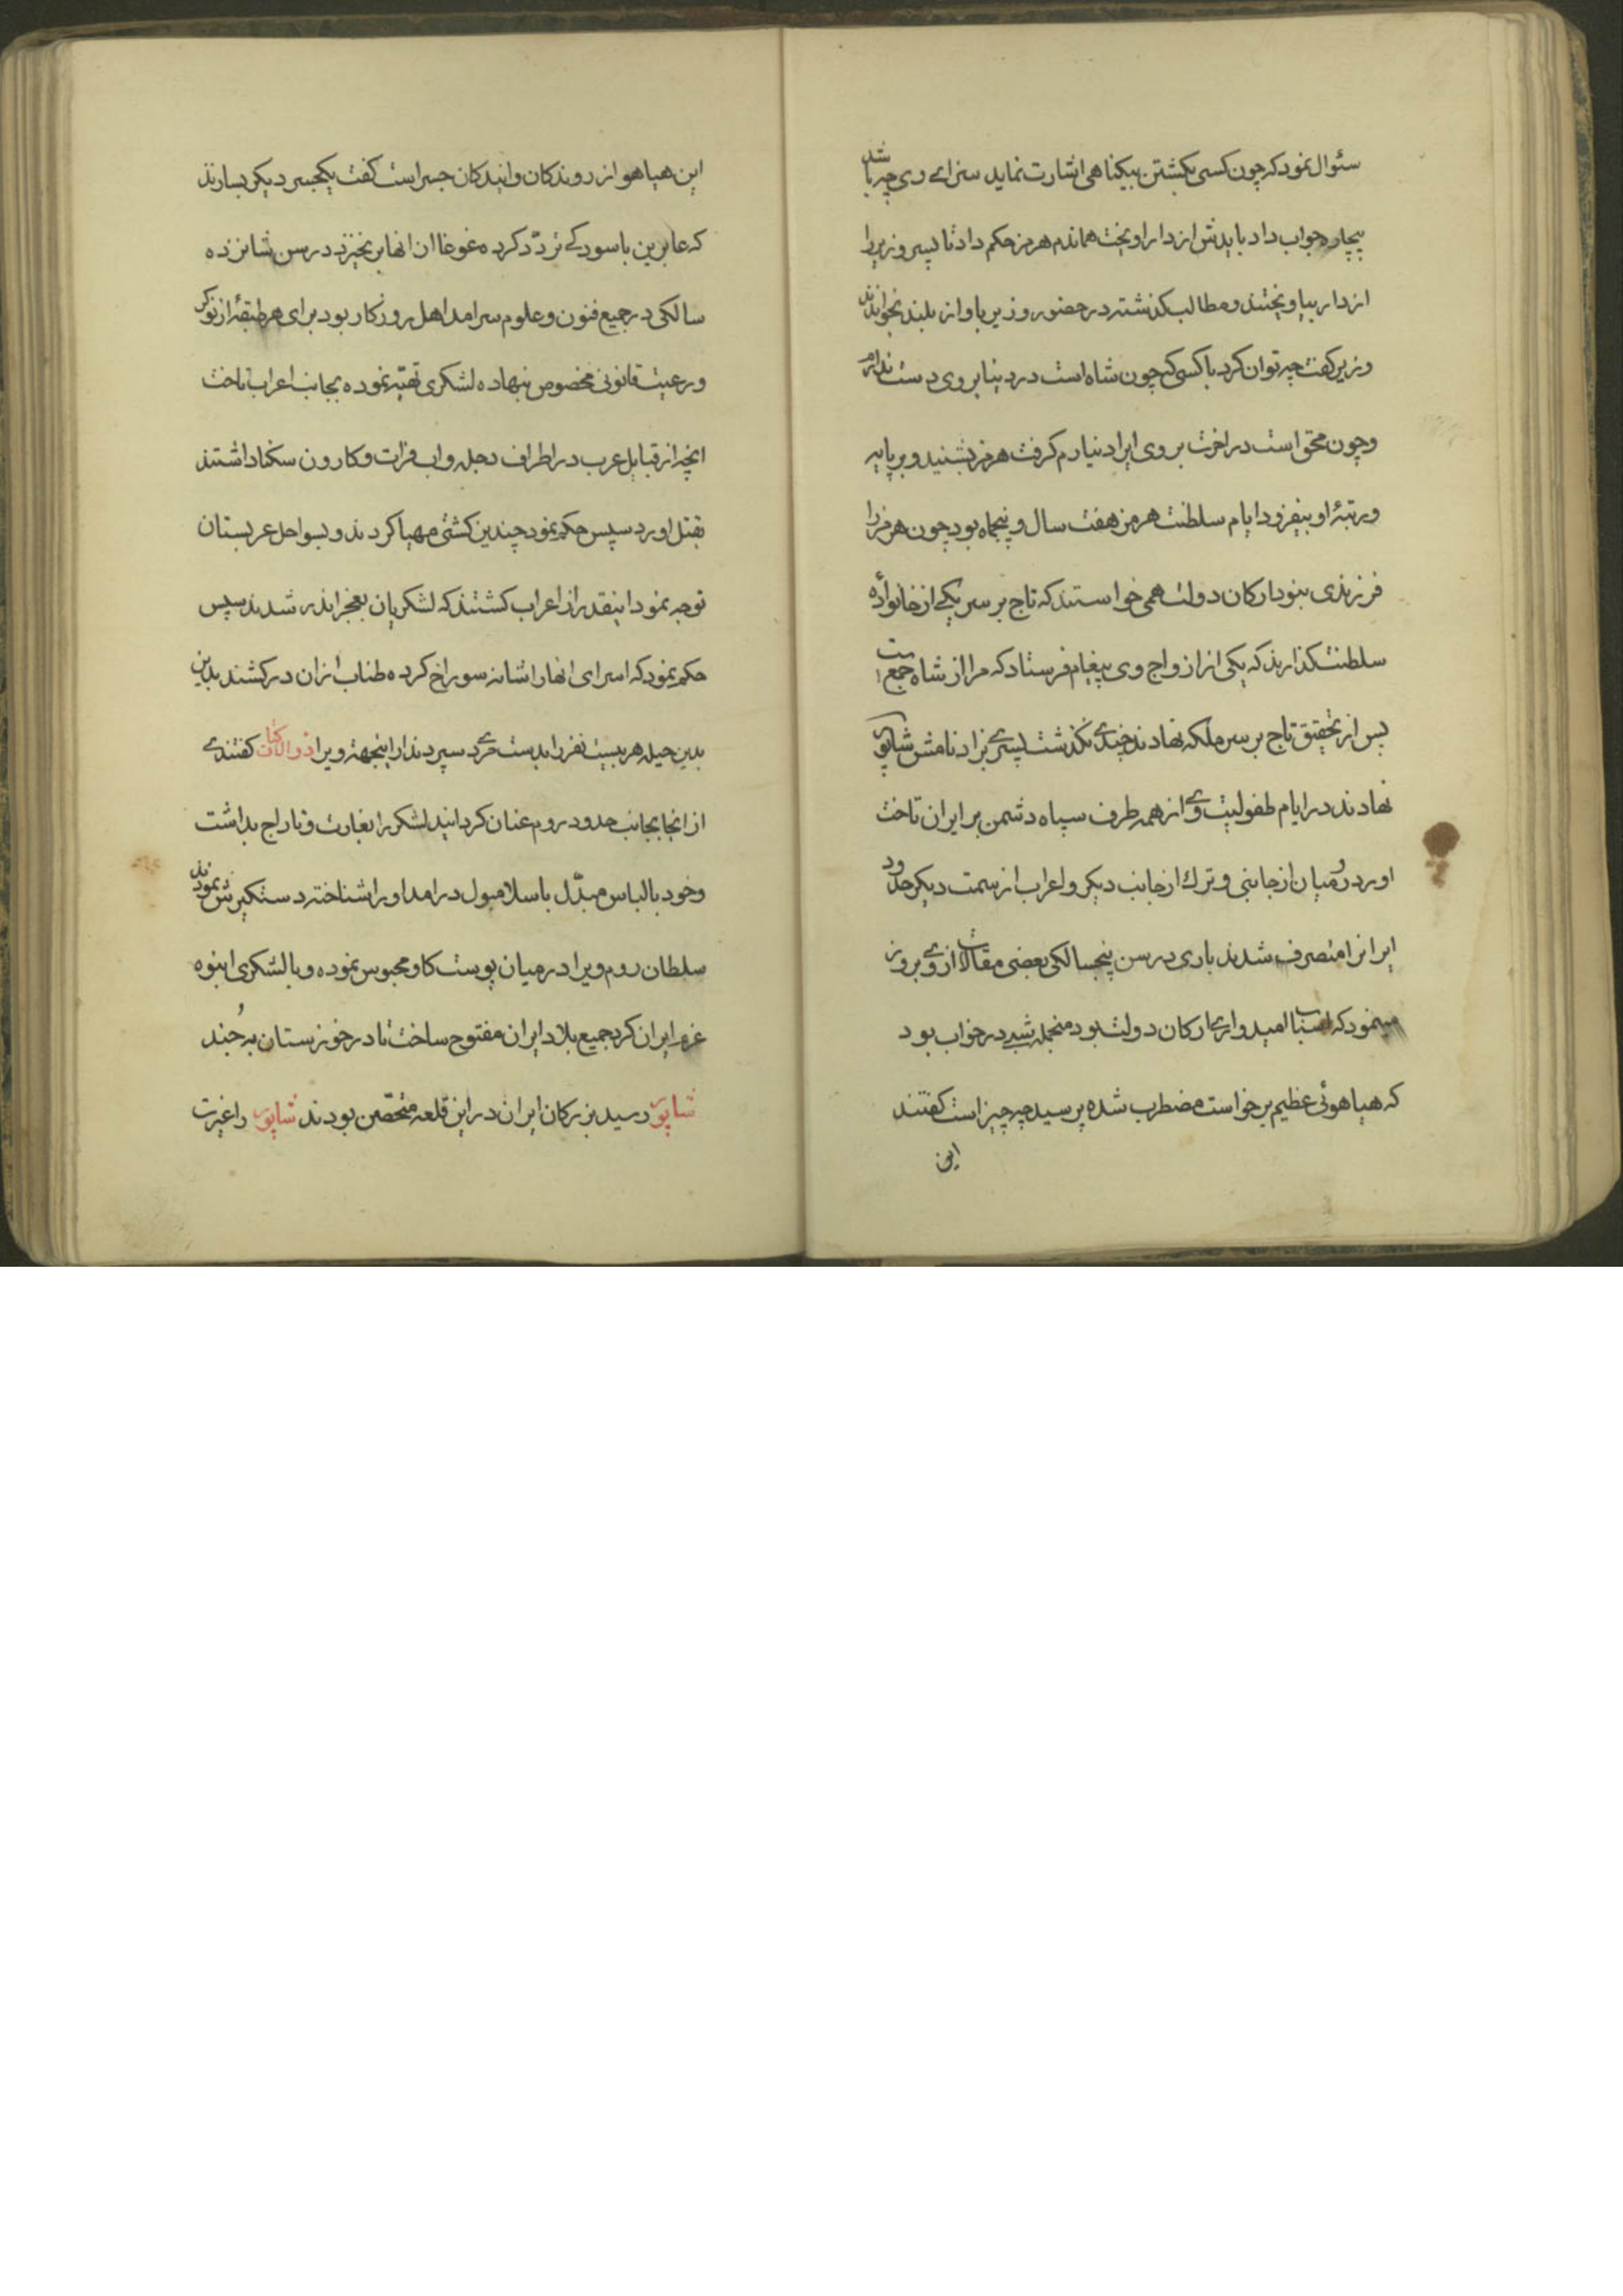 سئوال نمود که چون کسی بکشتن بیکناهی اشارت نماید سزای وی چه باشد
بیچاره جواب داد بایدش از دار اویخت هماندم هرمز حکم داد تا پسر وزیر را
از دار بیاویختند و مطالب کذشته در حضور وزیر باواز بلند بخواندند
وزیر کفت چه توان کرد با کسی که چون شاه است در دنیا بر وی دست ندارم
و چون محق است در اخرت بر وی ایراد نیارم کرفت هرمز بشنید و بر پایه
و رتبهٔ او بیفزود ایام سلطنت هرمز هفت سال و پنجماه بود چون هرمز را
فرزندی نبود ارکان دولت همی خواستند که تاج بر سر یکی از خانواده
سلطنت کذارند که یکی از ازواج وی پیغام فرستاد که مرا از شاه
پس از تحقیق تاج بر سر ملکه نهادند چندی نکذشت پسری بزاد نامش شاپور
نهادند در ایام طفولیت وی از همه طرف سپاه دشمن بر ایران تاخت
اورد رومیان از جانبی و ترك از جانب دیکر و اعراب از سمت دیکر حدود
ایرانرا متصرف شدند باری در سن پنجسالکی بعضی مقالات از وی بروز
مینمود که اسباب امیدواری ارکان دولت بود منجمله شبی در خواب بود
که هیاهوئی عظیم برخواست مضطرب شده پرسید چه چیز است کفتند
این
این هیاهو از روندکان و ایندکان جسر است کفت یکجسر دیکر بسازند
که عابرین باسودکی تردّد کرده غوغا از انها بر نخیزد در سن شانزده
سالکی در جمیع فنون و علوم سرامد اهل روزکار بود برای هر طبقهٔ از نوکر
و رعیت قانونی مخصوص بنهاده لشکری تهیّه نموده بجانب اعراب تاخت
انچه از قبایل عرب در اطراف دجله و اب فرات و کارون سکنا داشتند
بقتل اورد سپس حکم نمود چندین کشتی مهیا کردند و بسواحل عربستان
توجه نمود اینقدر از اعراب کشتند که لشکریان بعجز اندر شدند سپس
حکم نمود که اسرای انها را شانه سوراخ کرده طناب از ان در کشند بدین
بدین حیله هر بیست نفر را بدست مردی سپردند از اینجهة ویرا ذوالاکتاف کفتندی
از انجا بجانب حدود روم عنان کردانید لشکر را بغارت و تاراج بداشت
و خود با لباس مبدّل باسلامبول در امد او را شناخته دستکیرش نمودند
سلطان روم ویرا در میان پوست کاو محبوس نموده و با لشکری انبوه
عزم ایران کرد جمیع بلاد ایران مفتوح ساخت تا در خوزستان به جند
شاپور رسید بزرکان ایران در این قلعه متحصّن بودند شاپور را غیرت